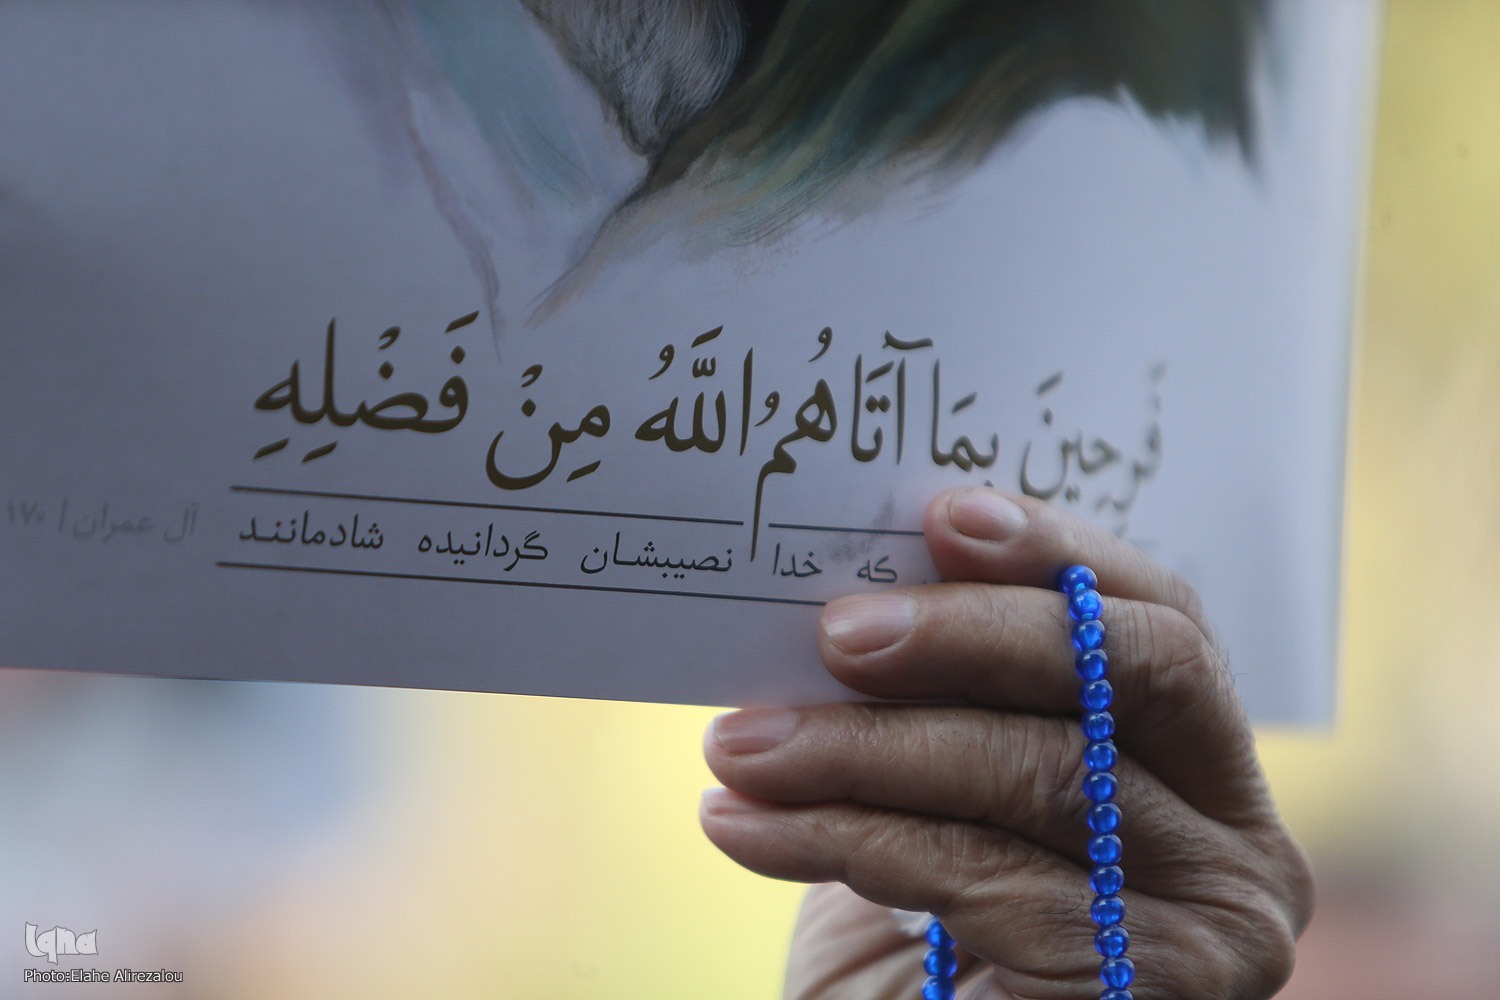 فَرِحِينَ بِمَا آتَاهُمُ اللَّهُ مِنْ فَضْلِهِ
که خدا نصیبشان گردانیده شادمانند
آل عمران | ۱۷۰
Iqna
Photo:Elahe Alirezalou